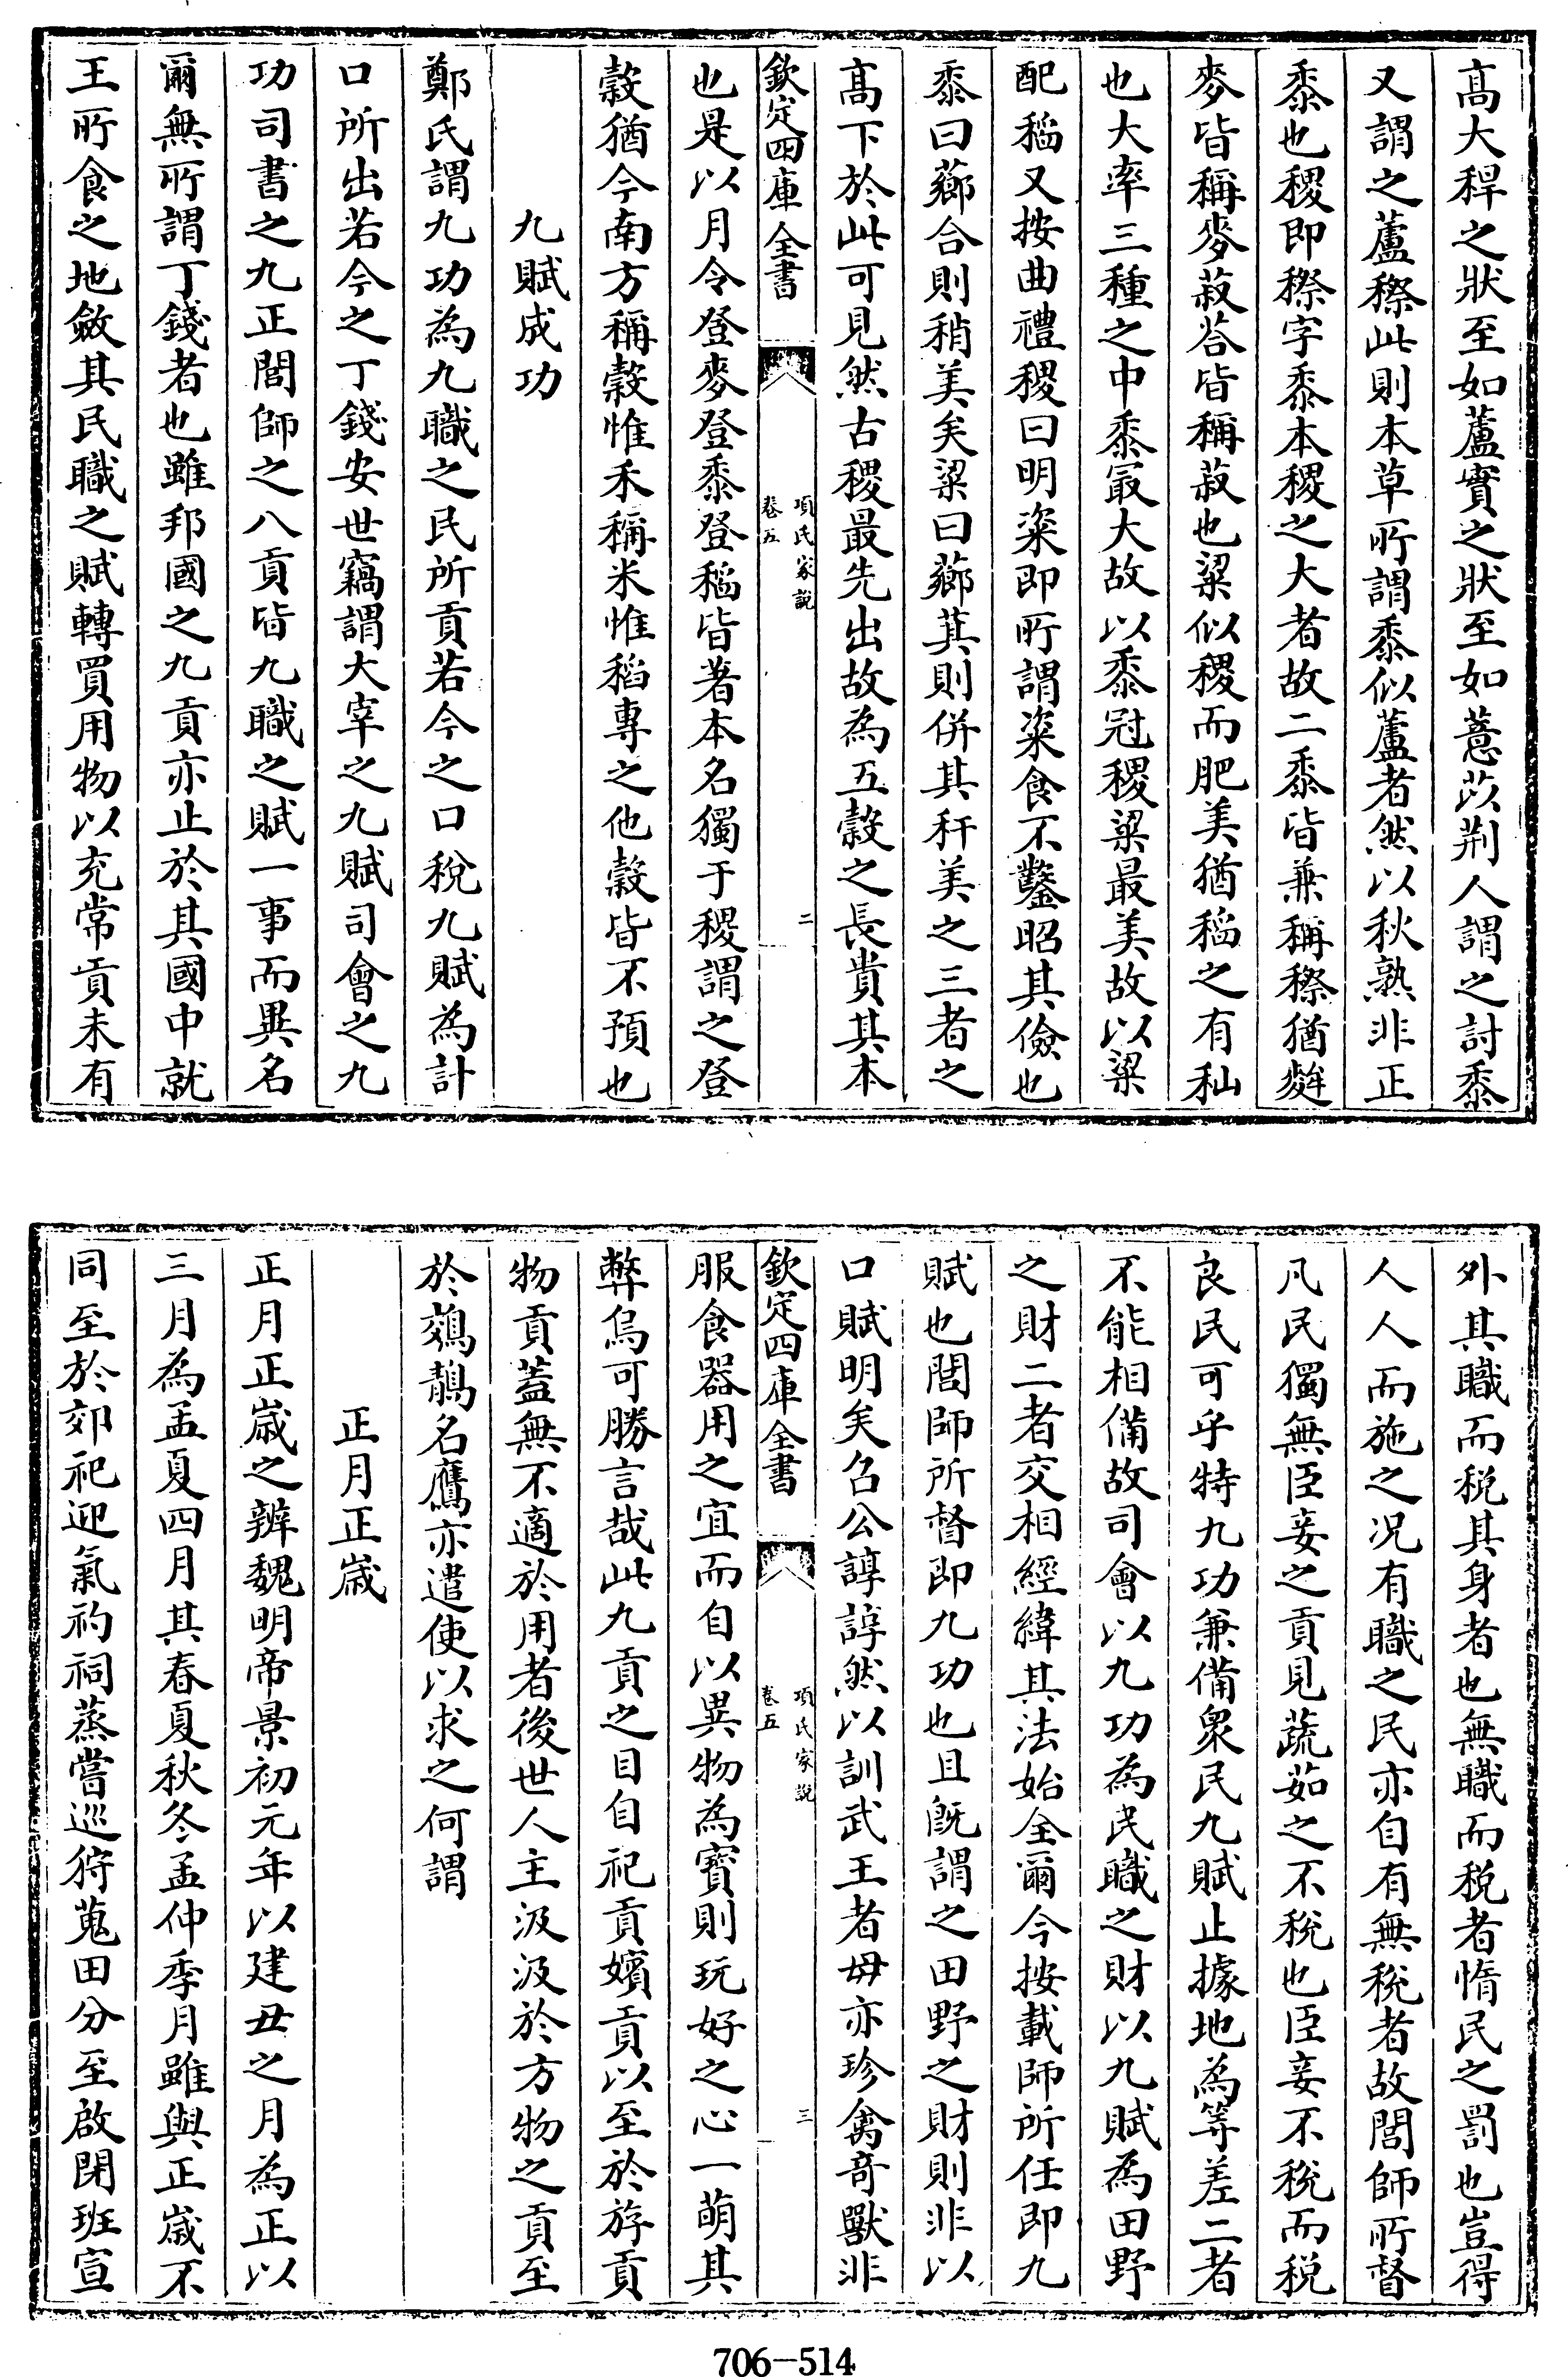 高大稈之狀至如蘆實之狀至如薏苡荆人謂之討黍
又謂之蘆穄此則本草所謂黍似蘆者然以秋熟非正
黍也稷即穄字黍本稷之大者故二黍皆兼稱穄猶麰
麥皆稱麥菽荅皆稱菽也粱似稷而肥美猶稻之有秈
也大率三種之中黍冣大故以黍冠稷粱最美故以粱
配稻又按曲禮稷曰明粢即所謂粢食不鑿昭其儉也
黍曰薌合則稍美矣粱曰薌萁則併其秆美之三者之
髙下於此可見然古稷最先出故為五穀之長貴其本
欽定四庫全書
項氏家說
卷五
二
也是以月令登麥登黍登稻皆著本名獨于稷謂之登
穀猶今南方稱穀惟禾稱米惟稻專之他穀皆不預也
九賦成功
鄭氏謂九功為九職之民所貢若今之口稅九賦為計
口所出若今之丁錢安世竊謂大宰之九賦司會之九
功司書之九正閭師之八貢皆九職之賦一事而異名
爾無所謂丁錢者也雖邦國之九貢亦止於其國中就
王所食之地斂其民職之賦轉買用物以充常貢未有
外其職而稅其身者也無職而稅者惰民之罰也豈得
人人而施之况有職之民亦自有無稅者故閭師所督
凡民獨無臣妾之貢見蔬茹之不稅也臣妾不稅而稅
良民可乎特九功兼備衆民九賦止據地為等差二者
不能相備故司會以九功為民職之財以九賦為田野
之財二者交相經緯其法始全爾今按載師所任即九
賦也閭師所督即九功也且既謂之田野之財則非以
口賦明矣召公諄諄然以訓武王者毋亦珍禽奇獸非
欽定四庫全書
項氏家說
卷五
三
服食器用之宜而自以異物為寳則玩好之心一萌其
弊烏可勝言哉此九貢之目自祀貢嬪貢以至於斿貢
物貢葢無不適於用者後世人主汲汲於方物之貢至
於鵁鶄名鷹亦遣使以求之何謂
正月正歲
正月正歲之辨魏明帝景初元年以建丑之月為正以
三月為孟夏四月其春夏秋冬孟仲季月雖與正歲不
同至於郊祀迎氣礿祠蒸嘗巡狩蒐田分至啟閉班宣
706-514